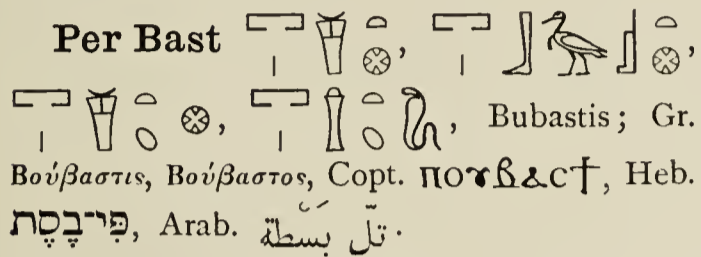 Per Bast 𓉐𓏤𓎯𓏏𓊖, 𓉐𓏤𓃀𓅡𓊨𓏏𓊖,
𓉐𓏤𓎯𓏏𓆇𓊖, 𓉐𓏤𓏏𓆇𓆗, Bubastis; Gr.
Βούβαστις, Βούβαστος, Copt. ⲡⲟⲩⲃⲁⲥϯ, Heb.
פִּי־בֶסֶת, Arab. تلّ بَسْطة.